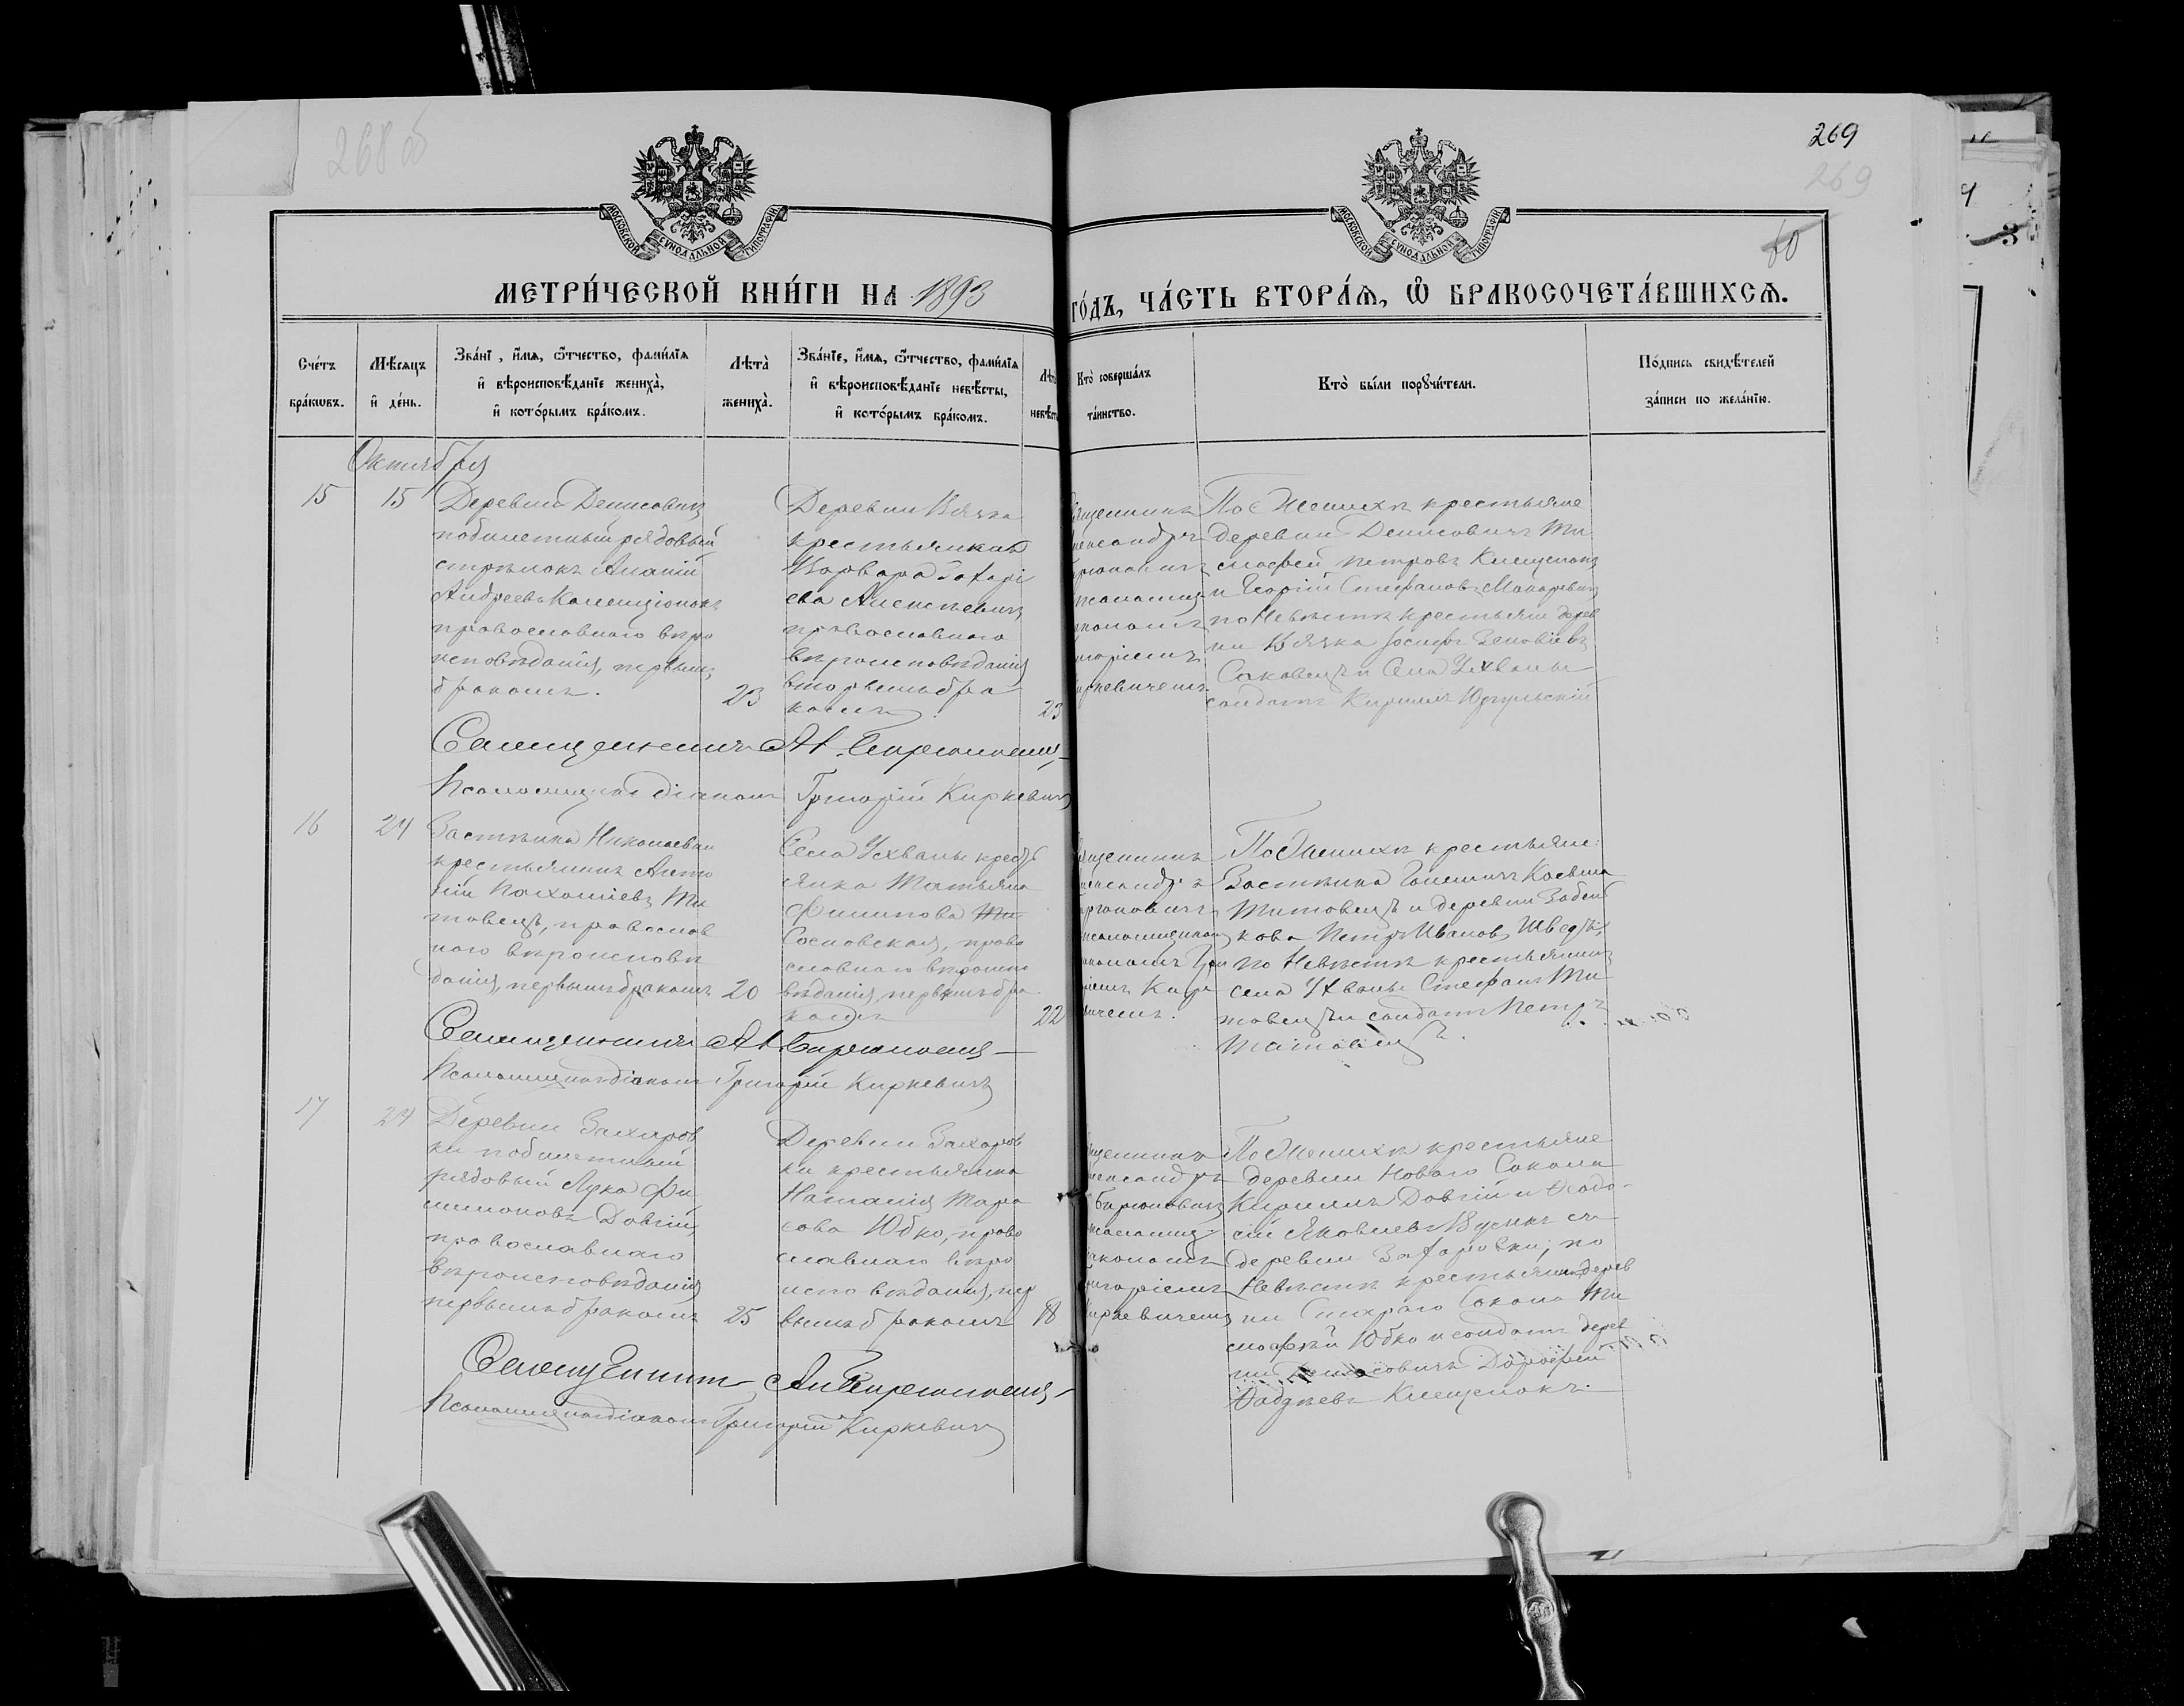 268 об
269
269
60
МОСКОВСКОЙ СУНОДАЛЬНОЙ ТИПОГРАФІИ
МОСКОВСКОЙ СУНОДАЛЬНОЙ ТИПОГРАФІИ
МЕТРИ́ЧЕСКОЙ КНИ́ГИ НА 1893
ГО́ДЪ, ЧА́СТЬ ВТОРА́Ѧ, Ѽ БРАКОСОЧЕТА́ВШИХСѦ.
Сче́тъ
бра́кѡвъ.
Мѣ́сѧцъ
и҆ де́нь.
Зва́нї , и҆́мѧ, ѻ҆́тчество, фами́лїѧ
и҆ вѣроисповѣ́данїе жениха̀,
и҆ кото́рымъ бра́комъ.
Лѣта̀
жениха̀.
Зва́нїе, и҆́мѧ, ѻ҆́тчество, фами́лїѧ
и҆ вѣроисповѣ́данїе невѣ́сты,
и҆ кото́рымъ бра́комъ.
Лѣт
невѣст
Кто̀ соверша́лъ
та́инство.
Кто̀ бы́ли порꙋчи́тели.
По́дпись свидѣ́телей
за́писи по жела́нїю.
Октября
15
15
Деревни Денисовичъ
побилетный рядовый
стрѣлокъ Ананій
Андреевъ
православнаго вѣро
исповѣданія, первымъ
бракомъ.
23
Деревни Вязка
крестьянка
Варвара Захарі
ева Алексѣевичъ
православнаго
вѣроисповѣданія
вторымъ бра
комъ
23
ященникъ
лександръ
ирюковичъ
псаломщ
акономъ
игоріемъ
иркевичемъ.
По Женихѣ крестьяне
деревни Денисовичъ Ти
мофей Петровъ Клещенокъ
и Георгій Стефановъ Макаревичъ
по Невѣстѣ крестьяни дерев
ни Вязка Іосифъ Зеновіевъ
Саковецъ и Села Ухвалы
солдатъ Кириллъ
Священникъ А. Бирюковичъ
Псаломщикъ діаконъ Григорій Киркевичъ
16
24
Застѣнка Николаевки
крестьянинъ Анто
ній Пахоміевъ Ти
товецъ, православ
наго вѣроисповѣ
данія, первымъ бракомъ
20
Села Ухвалы крестъ
янка Татьяна
Филипова Ти
Сосновская, право
славнаго вѣроиспо
вѣданія, первымъ бра
комъ
22
ященникъ
лександръ
ирюковичъ
псаломщикъ
акономъ Гри
ріемъ Кирк
вичемъ.
По Женихѣ крестьяне:
Застѣнка Косьма
Титовецъ и деревни Забей
кова Петръ Ивановъ Шведъ;
по Невѣстѣ крестьянинъ
села Ухвалы Стефанъ Ти
товецъ и солдатъ Петръ
Титовецъ.
Священникъ Ал. Бирюковичъ
Псаломщикъ діаконъ Григорій Киркевичъ
17
24
Деревни Захаров
ки побилетный
рядовый Лука Фи
лимоновъ Довгій,
православнаго
вѣроисповѣданія
первымъ бракомъ
25
Деревни Захаров
ки крестьянка
Наталія Тара
сова Юбко, право
славнаго вѣро
исповѣданія, пер
вымъ бракомъ
18
ященникъ
лександръ
Бирюковичъ
псаломщ
акономъ
игоріемъ
иркевичемъ
По Женихѣ крестьяне
деревни Новаго Сокола
Кириллъ Довгій и Ѳеодо-
сій Яковлевъ съ
деревни Захаровки; по
Невѣстѣ крестьянинъ дерев
ни Стараго Сокола Ти
мофей Юбко и солдатъ дерев
ни Денисовичъ Дорофей
Ѳаддѣевъ Клещенокъ.
Священникъ Ал. Бирюковичъ
Псаломщикъ діаконъ Григорій Киркевичъ